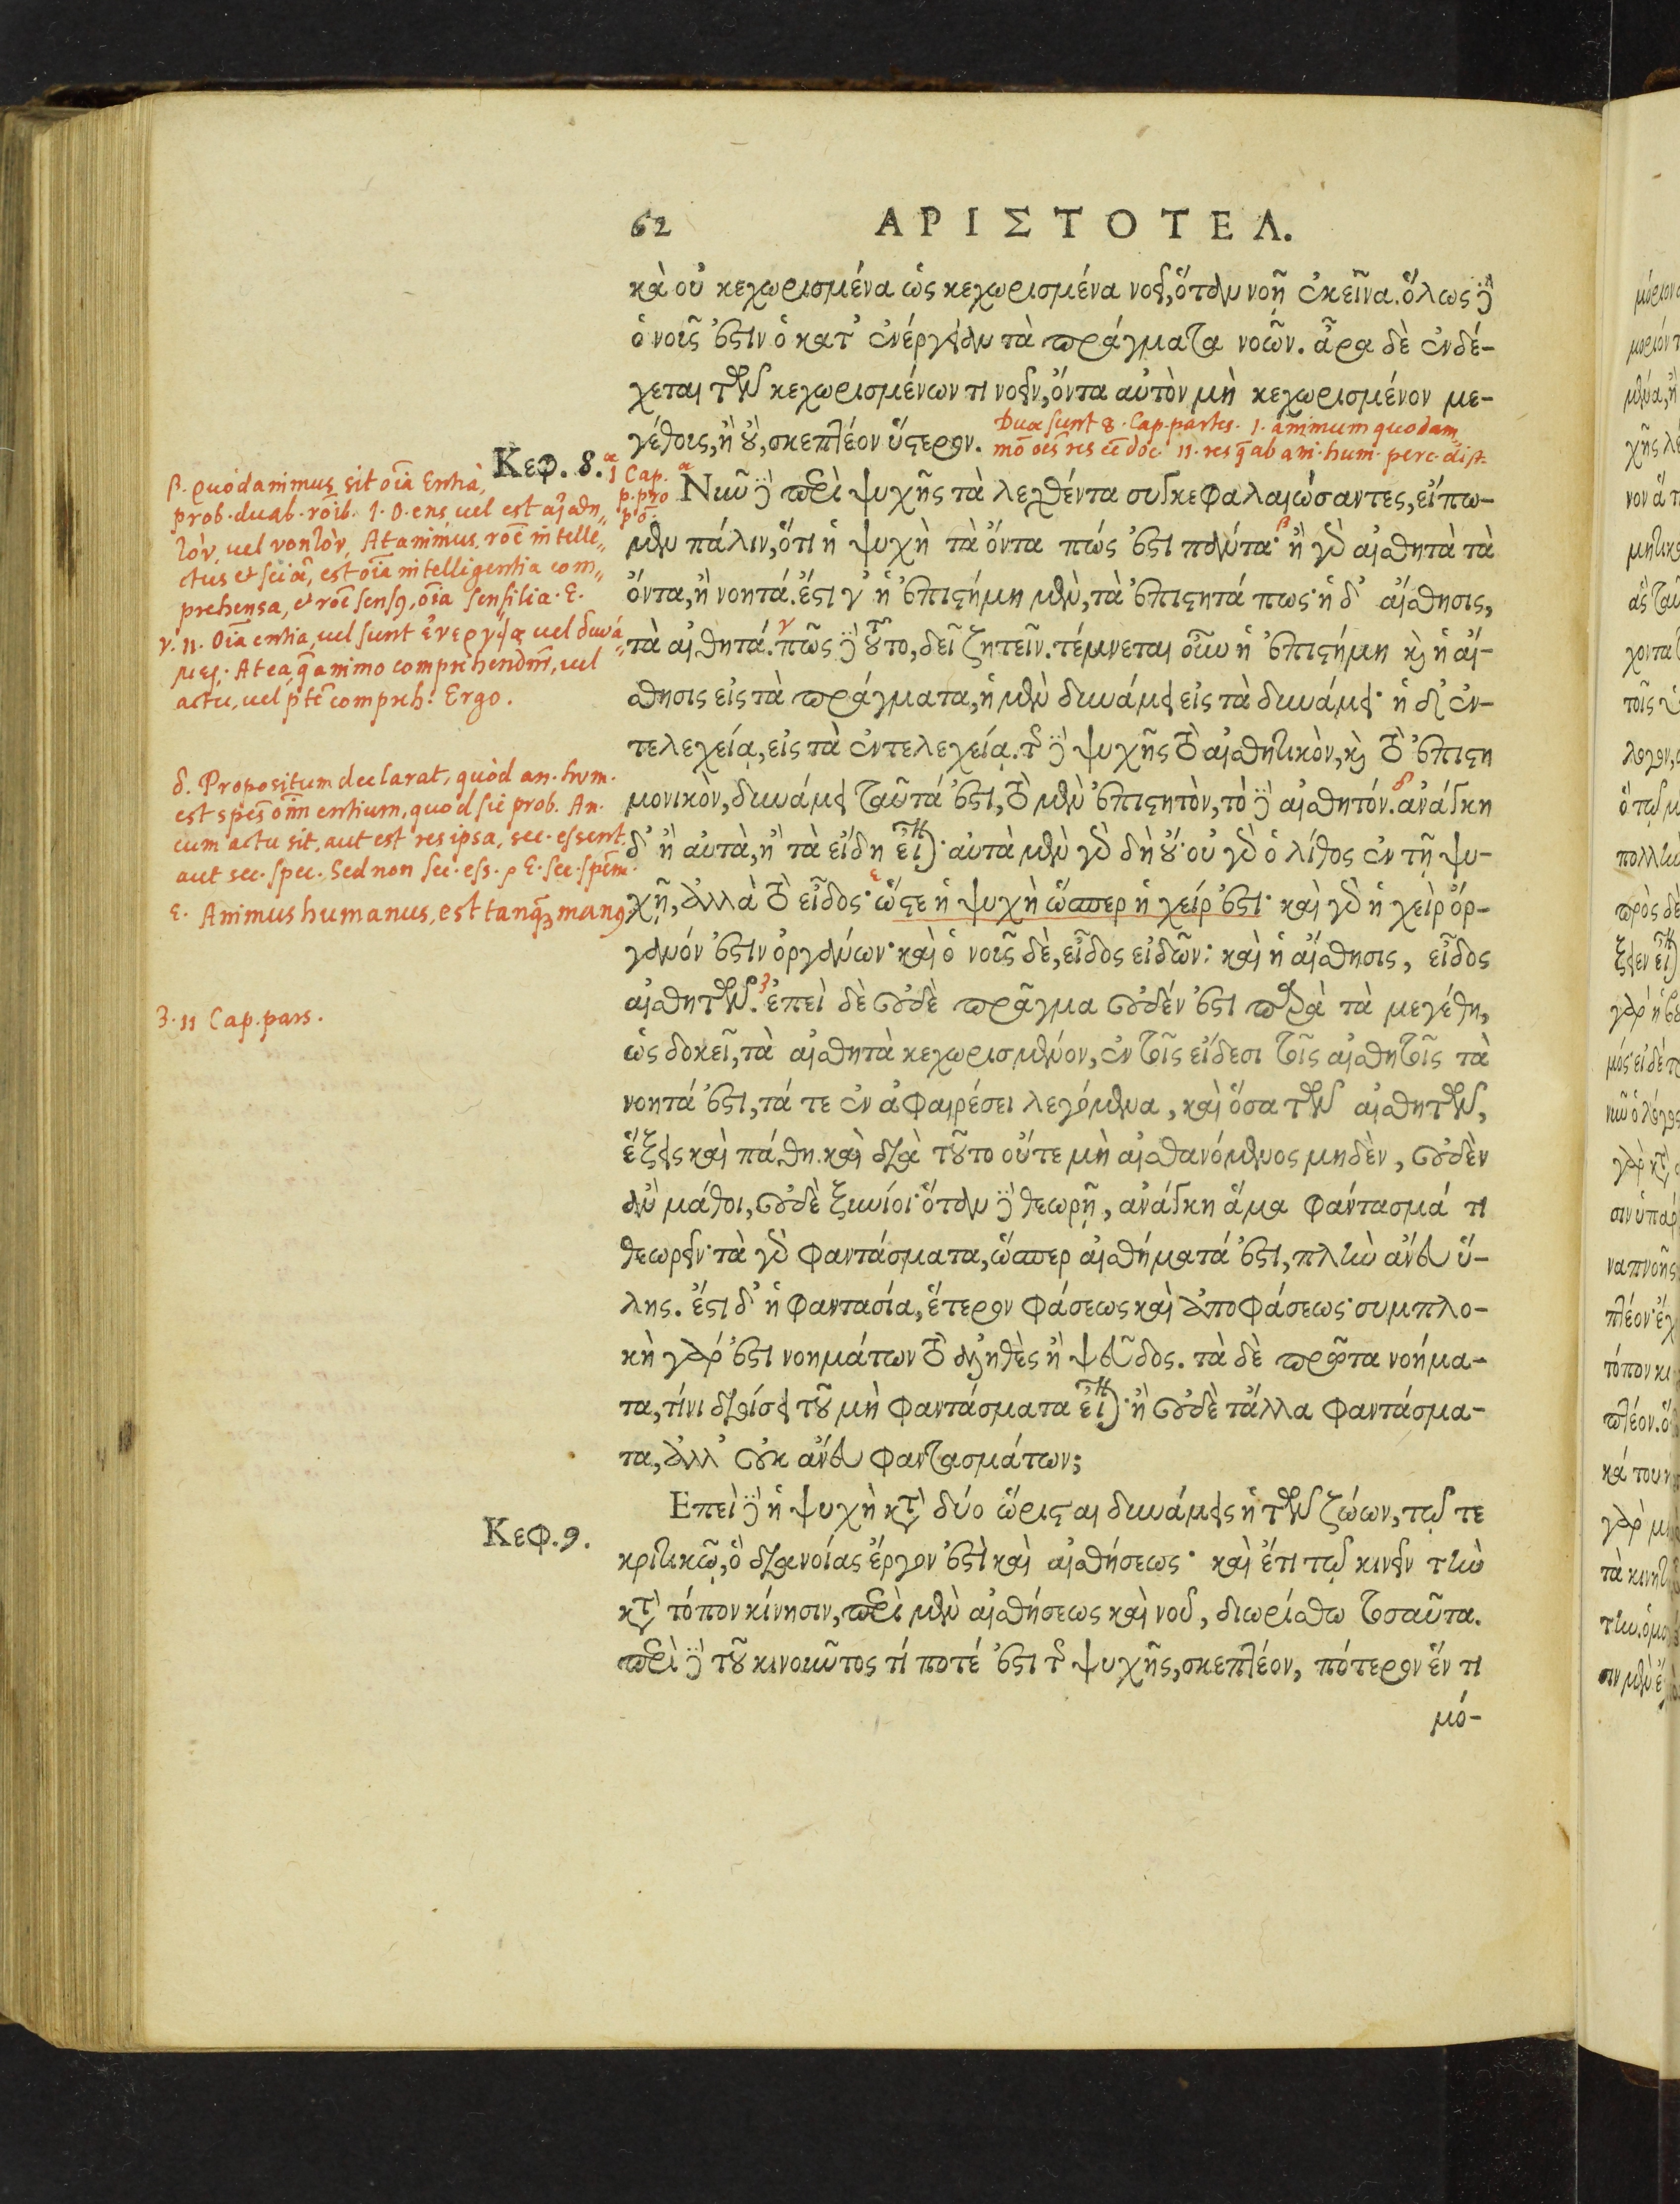 62 ΑΡΙΣΤΟΤΕΛ.
κὰ οὐ κεχωρισμένα ὡς κεχωρισμένα νοεῖ, ὅταν νοῇ ἐκεῖνα. ὅλως δὲ
ὁ νοῦς ἐστιν ὁ κατ' ἐνέργειαν τὰ πράγματα νοῶν. ἆρα δὲ ἐνδέ-
χεται τῶν κεχωρισμένων τι νοεῖν, ὄντα αὐτὸν μὴ κεχωρισμένον με-
γέθους, ἢ οὔ, σκεπτέον ὕστερον.
Duæ sunt 8. Cap. partes. 1. animum quodam
mō oēs res eē doc. 11. res q̄ ab am. hum. perc. dist.
Κεφ. 8.
α 1 Cap.
p. pro
pō.
Νῦν δὲ περὶ ψυχῆς τὰ λεχθέντα συγκεφαλαιώσαντες, εἴπω-
μεν πάλιν, ὅτι ἡ ψυχὴ τὰ ὄντα πώς ἐστι πάντα· ἢ γὰρ αἰσθητὰ τὰ
ὄντα, ἢ νοητά. ἔστι γ' ἡ ἐπιστήμη μὲν, τὰ ἐπιστητά πως· ἡ δ' αἴσθησις,
τὰ αἰσθητά. πῶς δὲ τοῦτο, δεῖ ζητεῖν. τέμνεται οὖν ἡ ἐπιστήμη καὶ ἡ αἴ-
σθησις εἰς τὰ πράγματα, ἡ μὲν δυνάμει εἰς τὰ δυνάμει· ἡ δ' ἐν-
τελεχείᾳ, εἰς τὰ ἐντελεχείᾳ. τῆς δὲ ψυχῆς τὸ αἰσθητικὸν, καὶ τὸ ἐπιστη
μονικὸν, δυνάμει ταῦτά ἐστι, τὸ μὲν ἐπιστητὸν, τὸ δὲ αἰσθητόν. ἀνάγκη
δ' ἢ αὐτὰ, ἢ τὰ εἴδη εἶναι· αὐτὰ μὲν γὰρ δὴ οὔ· οὐ γὰρ ὁ λίθος ἐν τῇ ψυ-
χῇ, ἀλλὰ τὸ εἶδος· ὥστε ἡ ψυχὴ ὥσπερ ἡ χείρ ἐστι· καὶ γὰρ ἡ χεὶρ ὄρ-
γανόν ἐστιν ὀργάνων· καὶ ὁ νοῦς δὲ, εἶδος εἰδῶν· καὶ ἡ αἴσθησις, εἶδος
αἰσθητῶν. ἐπεὶ δὲ οὐδὲ πρᾶγμα οὐδέν ἐστι παρὰ τὰ μεγέθη,
ὡς δοκεῖ, τὰ αἰσθητὰ κεχωρισμένον, ἐν τοῖς εἴδεσι τοῖς αἰσθητοῖς τὰ
νοητά ἐστι, τά τε ἐν ἀφαιρέσει λεγόμενα, καὶ ὅσα τῶν αἰσθητῶν,
ἕξεις καὶ πάθη. καὶ διὰ τοῦτο οὔτε μὴ αἰσθανόμενος μηδὲν, οὐδὲν
ἂν μάθοι, οὐδὲ ξυνίοι· ὅταν δὲ θεωρῇ, ἀνάγκη ἅμα φάντασμά τι
θεωρεῖν· τὰ γὰρ φαντάσματα, ὥσπερ αἰσθήματά ἐστι, πλὴν ἄνευ ὕ-
λης. ἔστι δ' ἡ φαντασία, ἕτερον φάσεως καὶ ἀποφάσεως· συμπλο-
κὴ γάρ ἐστι νοημάτων τὸ ἀληθὲς ἢ ψεῦδος. τὰ δὲ πρῶτα νοήμα-
τα, τίνι διοίσει τοῦ μὴ φαντάσματα εἶναι· ἢ οὐδὲ τἆλλα φαντάσμα-
τα, ἀλλ' οὐκ ἄνευ φαντασμάτων;
Κεφ. 9.
Επεὶ δὲ ἡ ψυχὴ κατὰ δύο ὥρισται δυνάμεις ἡ τῶν ζώων, τῷ τε
κριτικῷ, ὃ διανοίας ἔργον ἐστὶ καὶ αἰσθήσεως· καὶ ἔτι τῷ κινεῖν τὴν
κατὰ τόπον κίνησιν, περὶ μὲν αἰσθήσεως καὶ νοῦ, διωρίσθω τοσαῦτα.
περὶ δὲ τοῦ κινοῦντος τί ποτέ ἐστι τῆς ψυχῆς, σκεπτέον, πότερον ἕν τι
μό-
β. quòd animus sit oīa Entia,
prob. duab. rōib. 1. O. ens vel est αἰσθη„
τὸν, vel νοητὸν, At animus, rōe intelle„
ctus et sciæ, est oīa intelligentia com„
prehensa, et rōe sensꝯ, oīa sensilia. E.
γ. 11. Oīa entia, vel sunt ἐνεργείᾳ vel δυνά„
μει. At ea q̄ animo comprehendūt, vel
actu, vel ptē compreh. Ergo.
δ. Propositum declarat, quòd an. hum.
est spēs oīm entium, quod sic prob. An.
cum actu sit, aut est res ipsa, sec. essent.
aut sec. spec. Sed non sec. ess. ρ E. sec. spēm.
ε. Animus humanus, est tanq̄ꝫ manꝯ.
3. 11 Cap. pars.